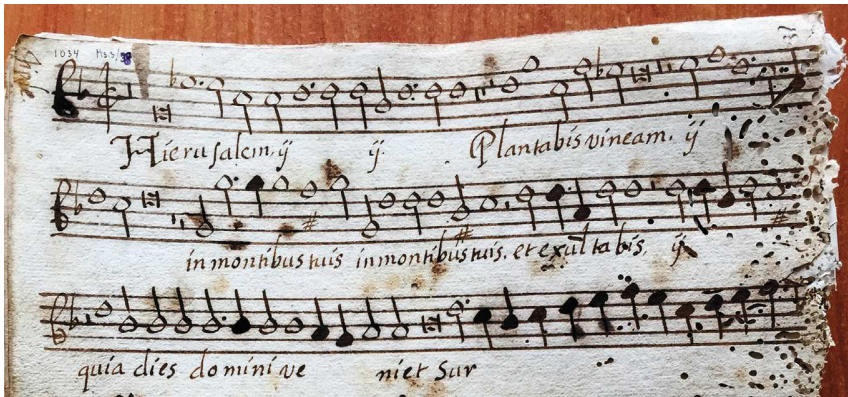 1034 Mss/38
Hierusalem. ij ij. Plantabis vineam. ij
in montibus tuis in montibus tuis. et exultabis, ij
quia dies domini ve niet Sur